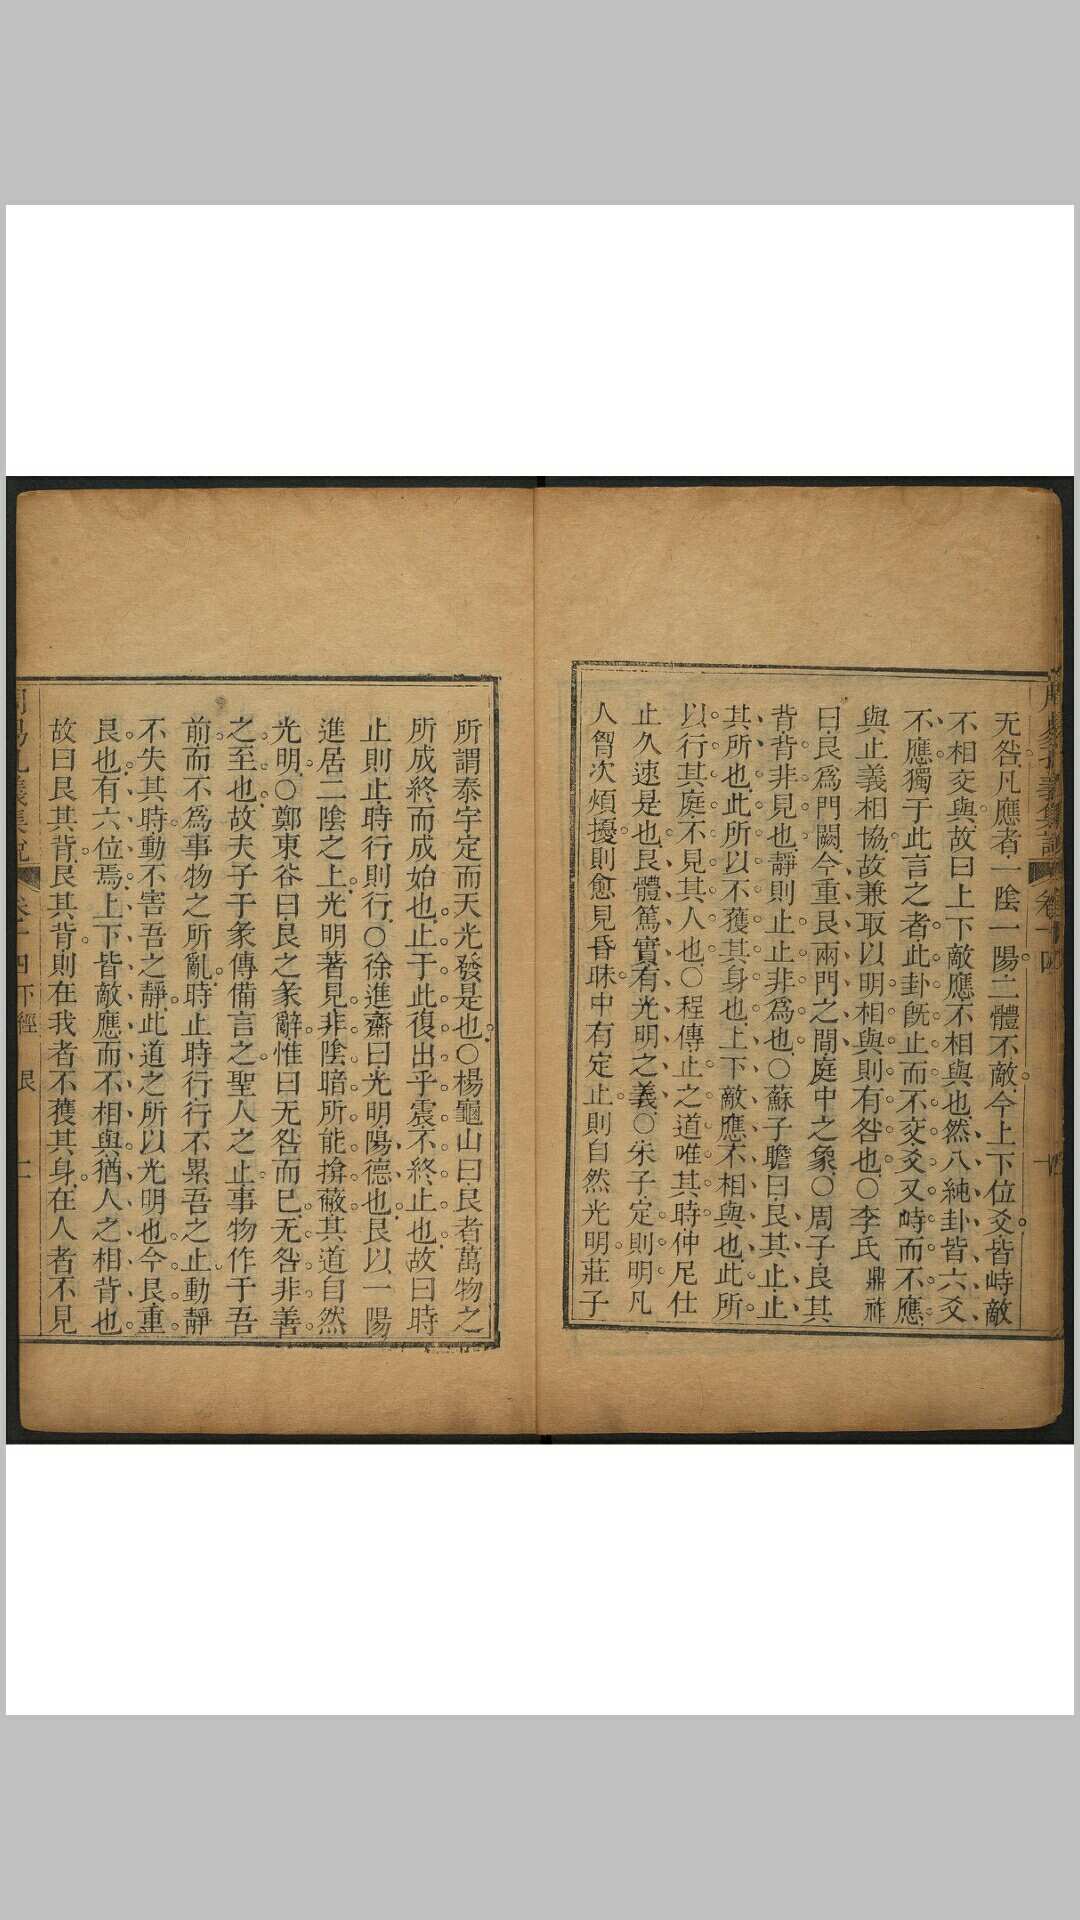 无咎凡應者一陰一陽二體不敵今上下位爻皆峙敵
不相交與故曰上下敵應不相與也然八純卦皆六爻
不應獨于此言之者此卦旣止而不交爻又峙而不應
與止義相協故兼取以明相與則有咎也○李氏鼎祚
曰艮爲門闕今重艮兩門之間庭中之象○周子艮其
背背非見也靜則止止非爲也○蘇子瞻曰艮其止止
其所也此所以不獲其身也上下敵應不相與也此所
以行其庭不見其人也○程傳止之道唯其時仲尼仕
止久速是也艮體篤實有光明之義○朱子定則明凡
人胷次煩擾則愈見昏昧中有定止則自然光明莊子
所謂泰宇定而天光發是也○楊龜山曰艮者萬物之
所成終而成始也止于此復出乎震不終止也故曰時
止則止時行則行○徐進齋曰光明陽德也艮以一陽
進居二陰之上光明著見非陰暗所能揜蔽其道自然
光明○鄭東谷曰艮之彖辭惟曰无咎而已无咎非善
之至也故夫子于彖傳備言之聖人之止事物作于吾
前而不爲事物之所亂時止時行行不累吾之止動靜
不失其時動不害吾之靜此道之所以光明也今艮重
艮也有六位焉上下皆敵應而不相與猶人之相背也
故曰艮其背艮其背則在我者不獲其身在人者不見